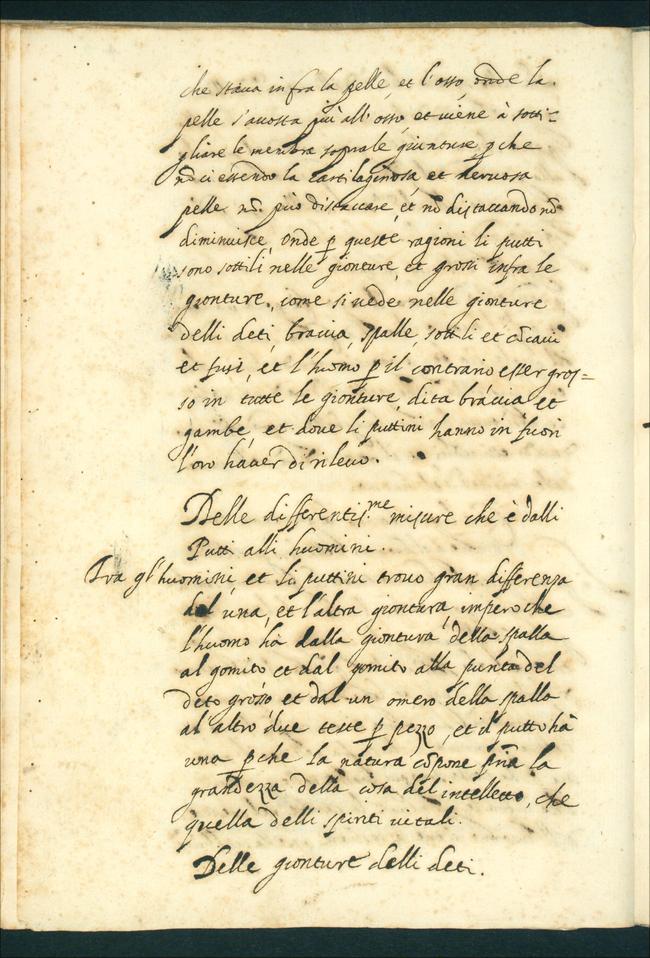 che staua infra la pelle, et l'osso, onde la
pelle s'acosta più all'osso, et uiene à sotti=
gliare le membra sopra le giunture p̱ che
nō ci essendo la cartilaginosa et neruosa
pelle nō può distaccare, et nō distaccando nō
diminuisce, Onde p̱ queste ragioni li putti
sono sottili nelle gionture, et grossi infra le
gionture, come si uede nelle gionture
delli deti, braccia, spalle, sottili et cōcaui
et fusi, et l'huomo p̱ il contrario esser gros=
so in tutte le gionture, dita braccia et
gambe, et doue li puttini hanno in fuori
l'oro hauer di rileuo.
Delle differentis.me misure che è dalli
Putti alli huomini.
Tra gl'huomini, et li puttini trouo gran differenza
dal una, et l'altra giontura, impero che
l'huomo hà dalla giontura della spalla
al gomito et dal gomito alla punta del
deto grosso et dal un omero della spalla
al altro due teste p̱ pezzo, et il putto hà
una p̱che la natura cōpone pr̄ia la
grandezza della cosa del intelletto, che
quella delli spiriti uitali.
Delle gionture delli deti.